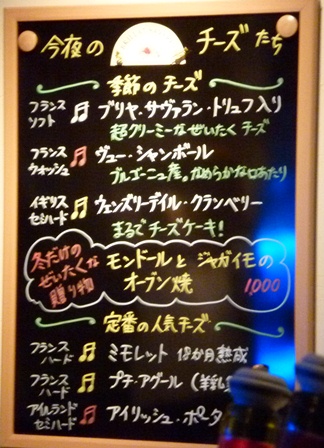 今夜の チーズたち
季節の チーズ
フランス ソフト ブリヤ・サヴァラン・トリュフ入り
超クリーミーなぜいたく チーズ
フランス ウォッシュ ヴュー・シャンボール
ブルゴーニュ産。なめらかな口あたり
イギリス セミハード ウェンズリーデイル・クランベリー
まるでチーズケーキ!
冬だけの ぜいたくな 贈り物
モンドールと ジャガイモの
オーブン焼 1,000
定番の人気チーズ
フランス ハード ミモレット 18か月熟成
フランス ハード プチ・アグール (羊乳
アイルランド セミハード アイリッシュ・ポータ